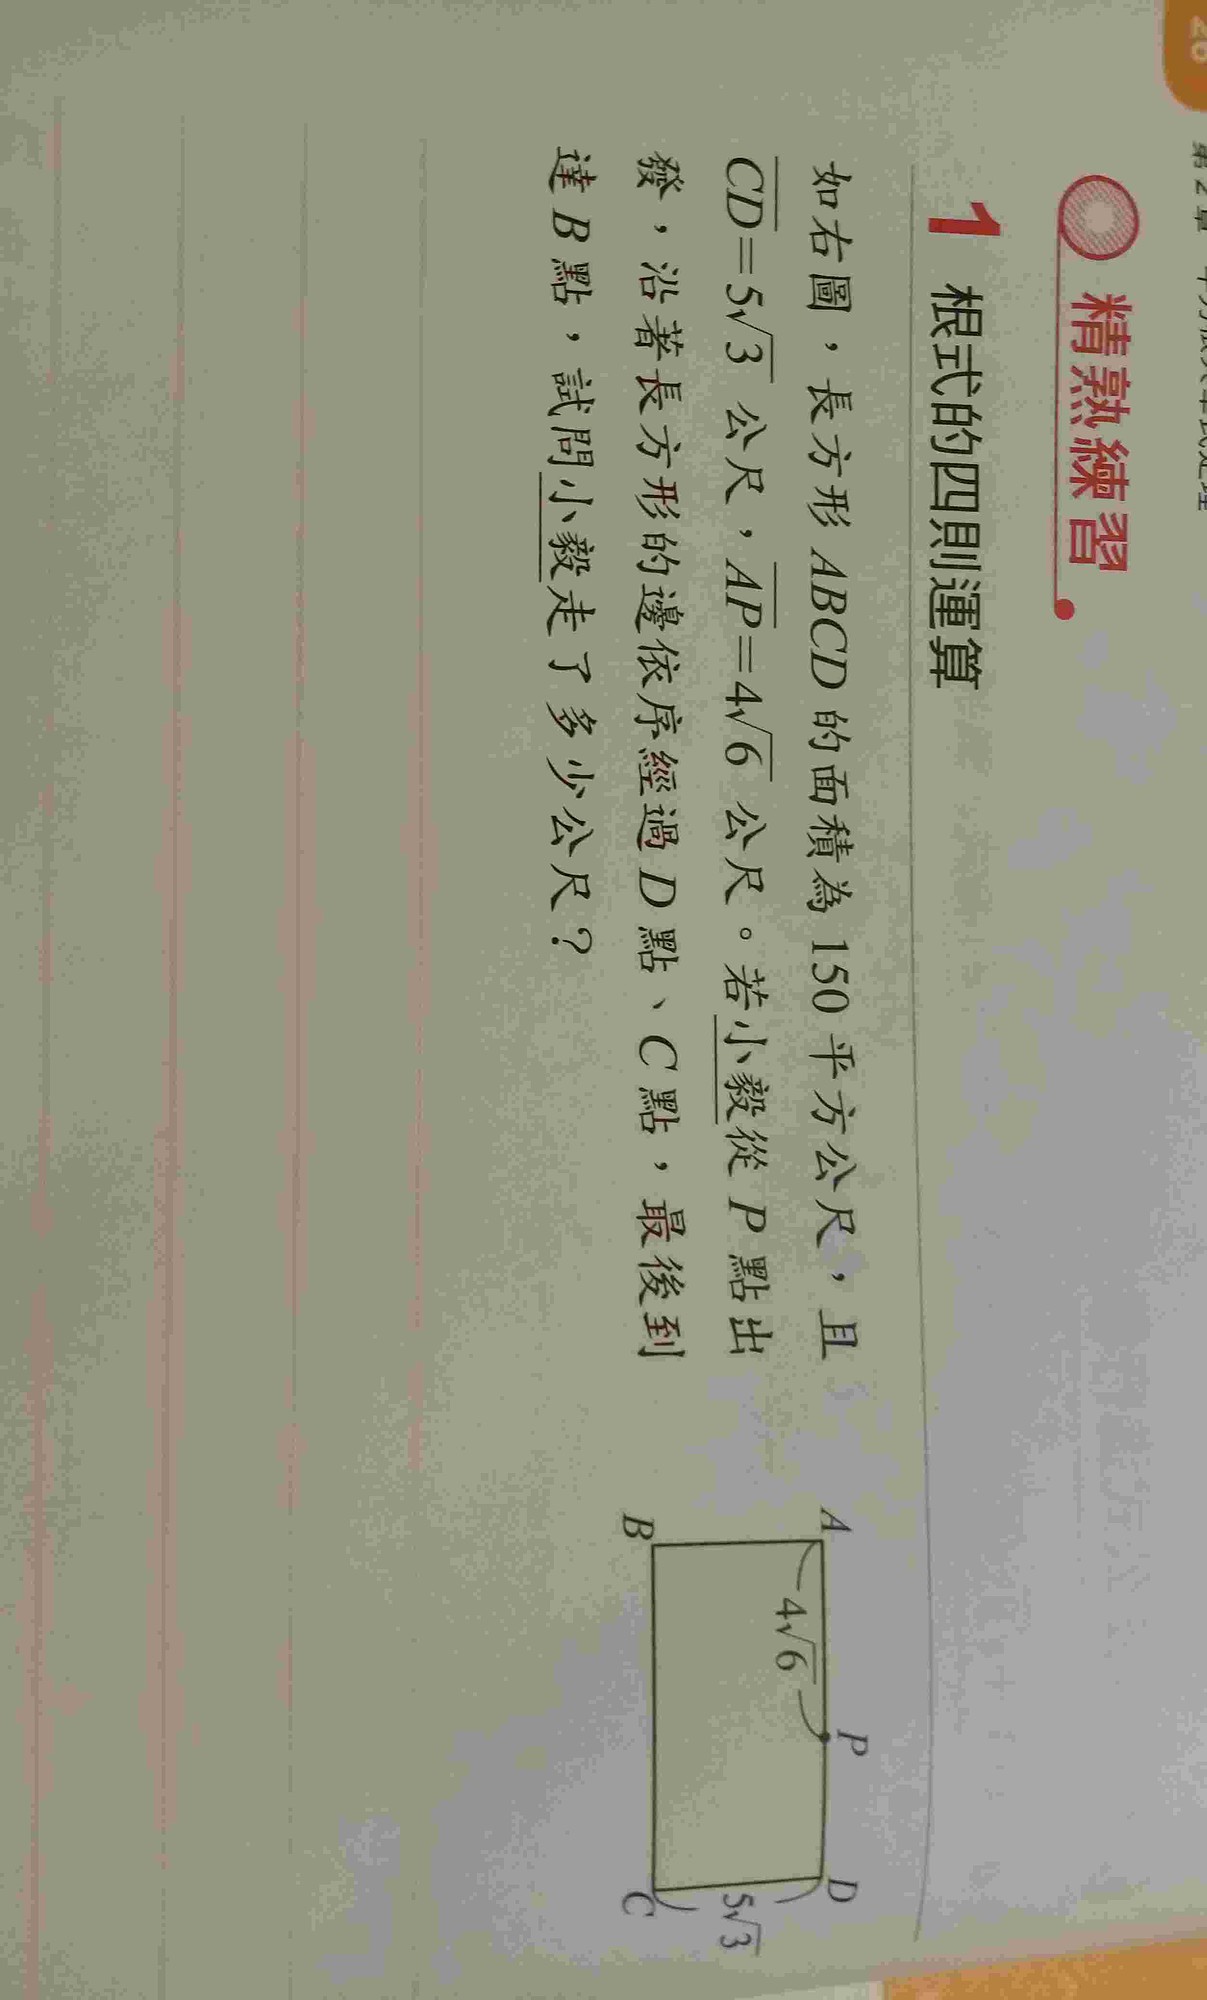 26
第 2 章
精熟練習
1 根式的四則運算
如右圖，長方形 ABCD 的面積為 150 平方公尺，且
CD=5√3 公尺，AP=4√6 公尺。若小毅從 P 點出
發，沿著長方形的邊依序經過 D 點、C 點，最後到
達 B 點，試問小毅走了多少公尺？
A
P
D
4√6
5√3
B
C